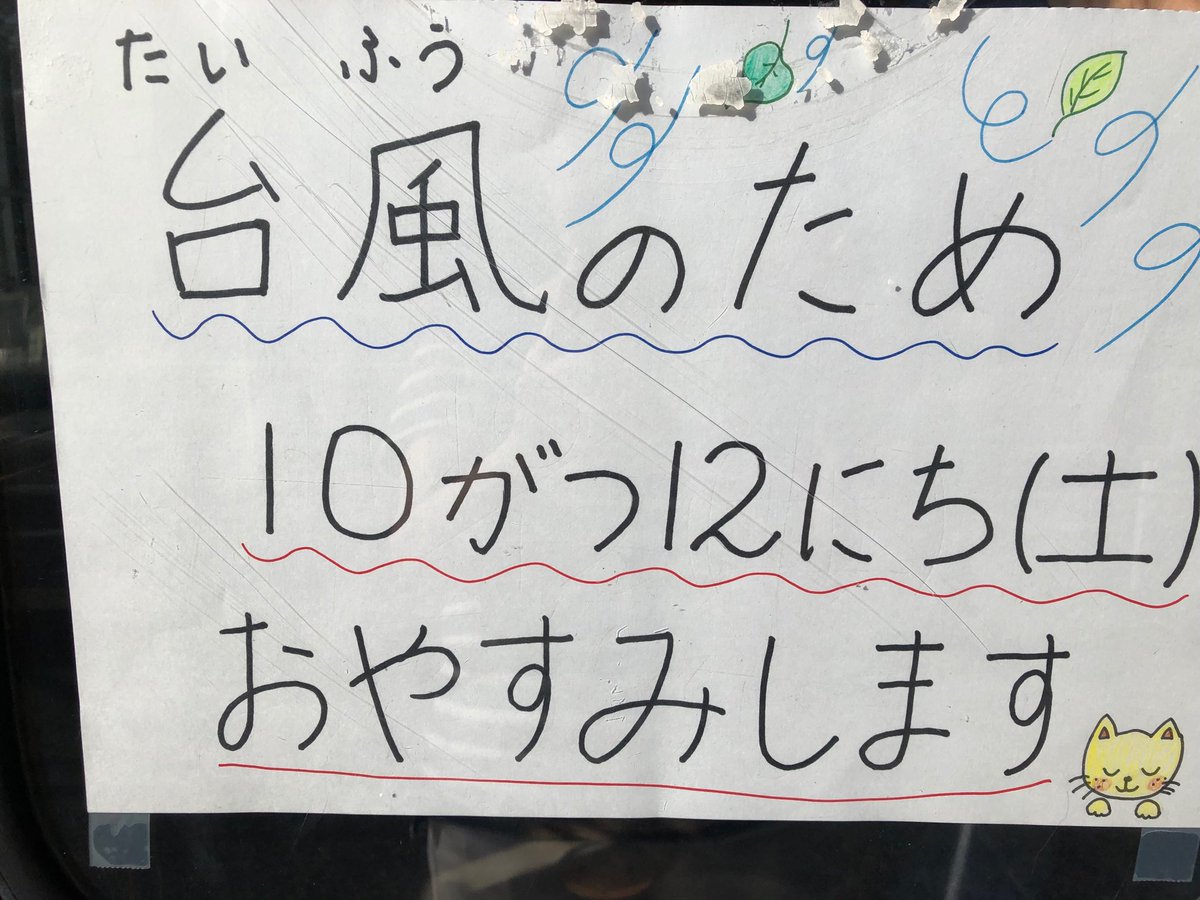 たい ふう
台風のため
10がつ12にち(土)
おやすみします